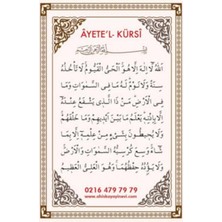 ÂYETE'L- KÜRSÎ
اَللّٰهُ لَٓا اِلٰهَ اِلَّا هُوَ اَلْحَيُّ الْقَيُّومُ لَا تَأْخُذُهُ
سِنَةٌ وَلَا نَوْمٌ لَهُ مَا فِي السَّمٰوَاتِ وَمَا
فِي الْاَرْضِ مَنْ ذَا الَّذِي يَشْفَعُ عِنْدَهُٓ
اِلَّا بِاِذْنِهِ يَعْلَمُ مَا بَيْنَ اَيْدِيهِمْ وَمَا خَلْفَهُمْ
وَلَا يُحِيطُونَ بِشَيْءٍ مِنْ عِلْمِهِٓ اِلَّا بِمَا
شَٓاءَ وَسِعَ كُرْسِيُّهُ السَّمٰوَاتِ وَالْاَرْضَ
وَلَا يَؤُدُهُ حِفْظُهُمَا وَهُوَ الْعَلِيُّ الْعَظِيمُ
0216 479 79 79